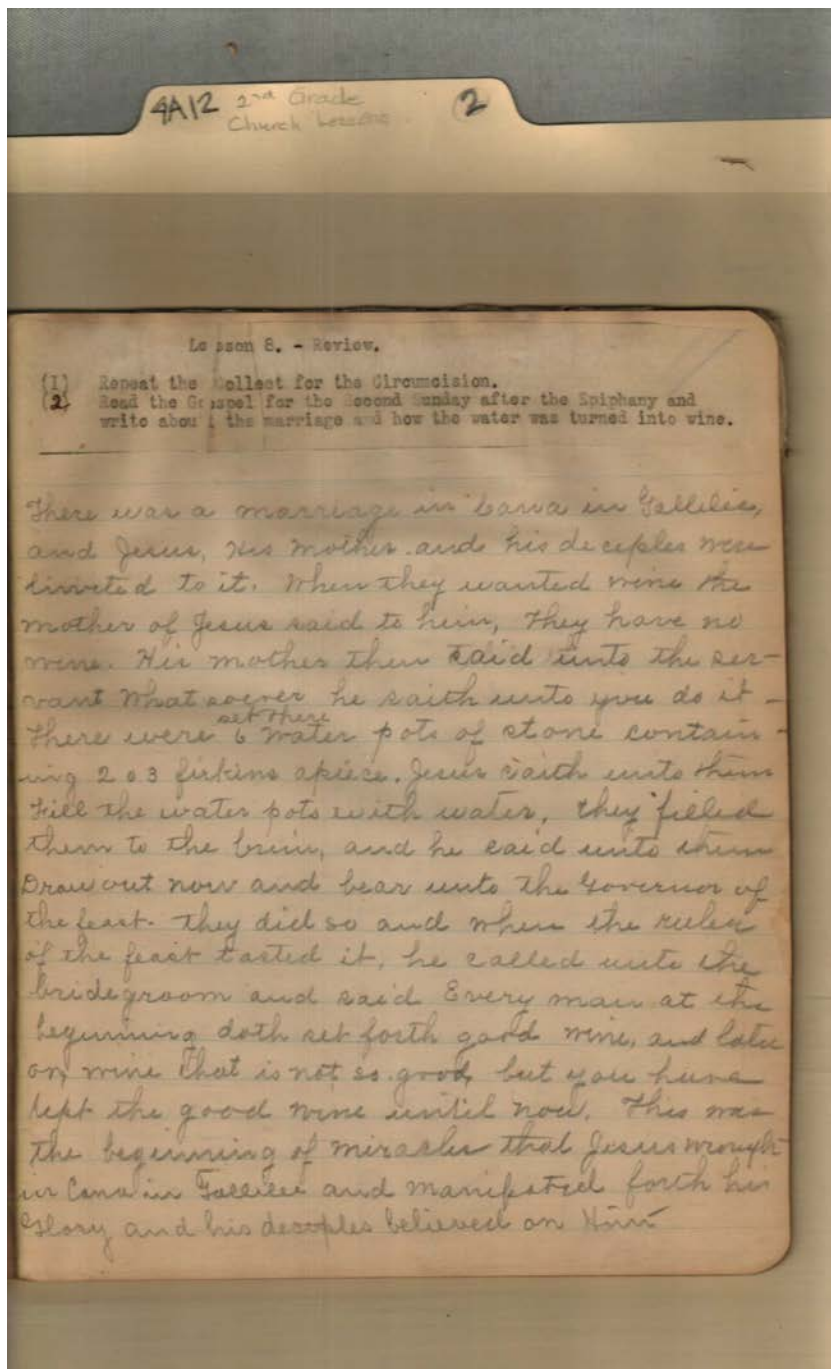 4A12 2nd Grade (2)
Church Lessons
Lesson 8. - Review.
(1) Repeat the Collect for the Circumcision.
(2) Read the Gospel for the Second Sunday after the Epiphany and
write about the marriage and how the water was turned into wine.
There was a marriage in Cana in Gallilie,
and Jesus, His Mother and his deciples were
invited to it. When they wanted wine the
mother of Jesus said to him, They have no
wine. His mother then said unto the ser-
vant Whatsoever he saith unto you do it -
set there
There were 6 water pots of stone contain-
ing 2 o 3 firkins apiece. Jesus saith unto them
Fill the water pots with water, they filled
them to the brim, and he said unto them
Draw out now and bear unto the Governor of
the feast. They did so and when the ruler
of the feast tasted it, he called unto the
bridegroom and said Every man at the
beginning doth set forth good wine, and later
on, wine that is not so good, but you have
kept the good wine until now. This was
the beginning of miracles that Jesus wrought
in Cana in Gallilie and manifested forth his
Glory and his deciples believed on Him